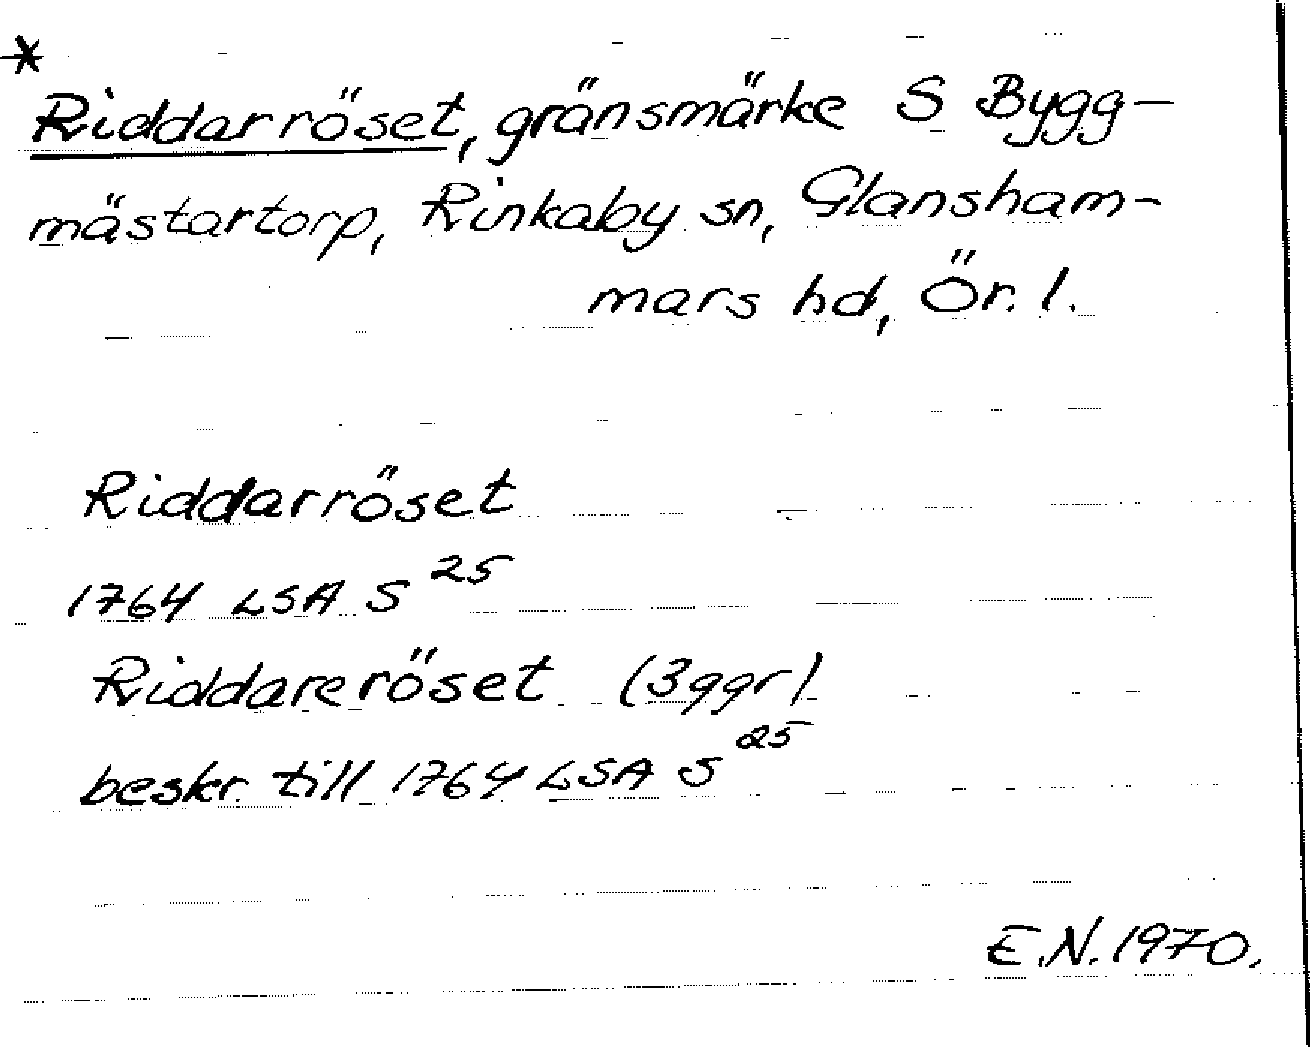 *
Riddarröset, gränsmärke S Bygg-
mästartorp, Rinkaby sn, Glansham-
mars hd, Ör. l.
Riddarröset
1764 LSA S 25
Riddareröset (3ggr)
beskr. till 1764 LSA S 25
E.N. 1970.